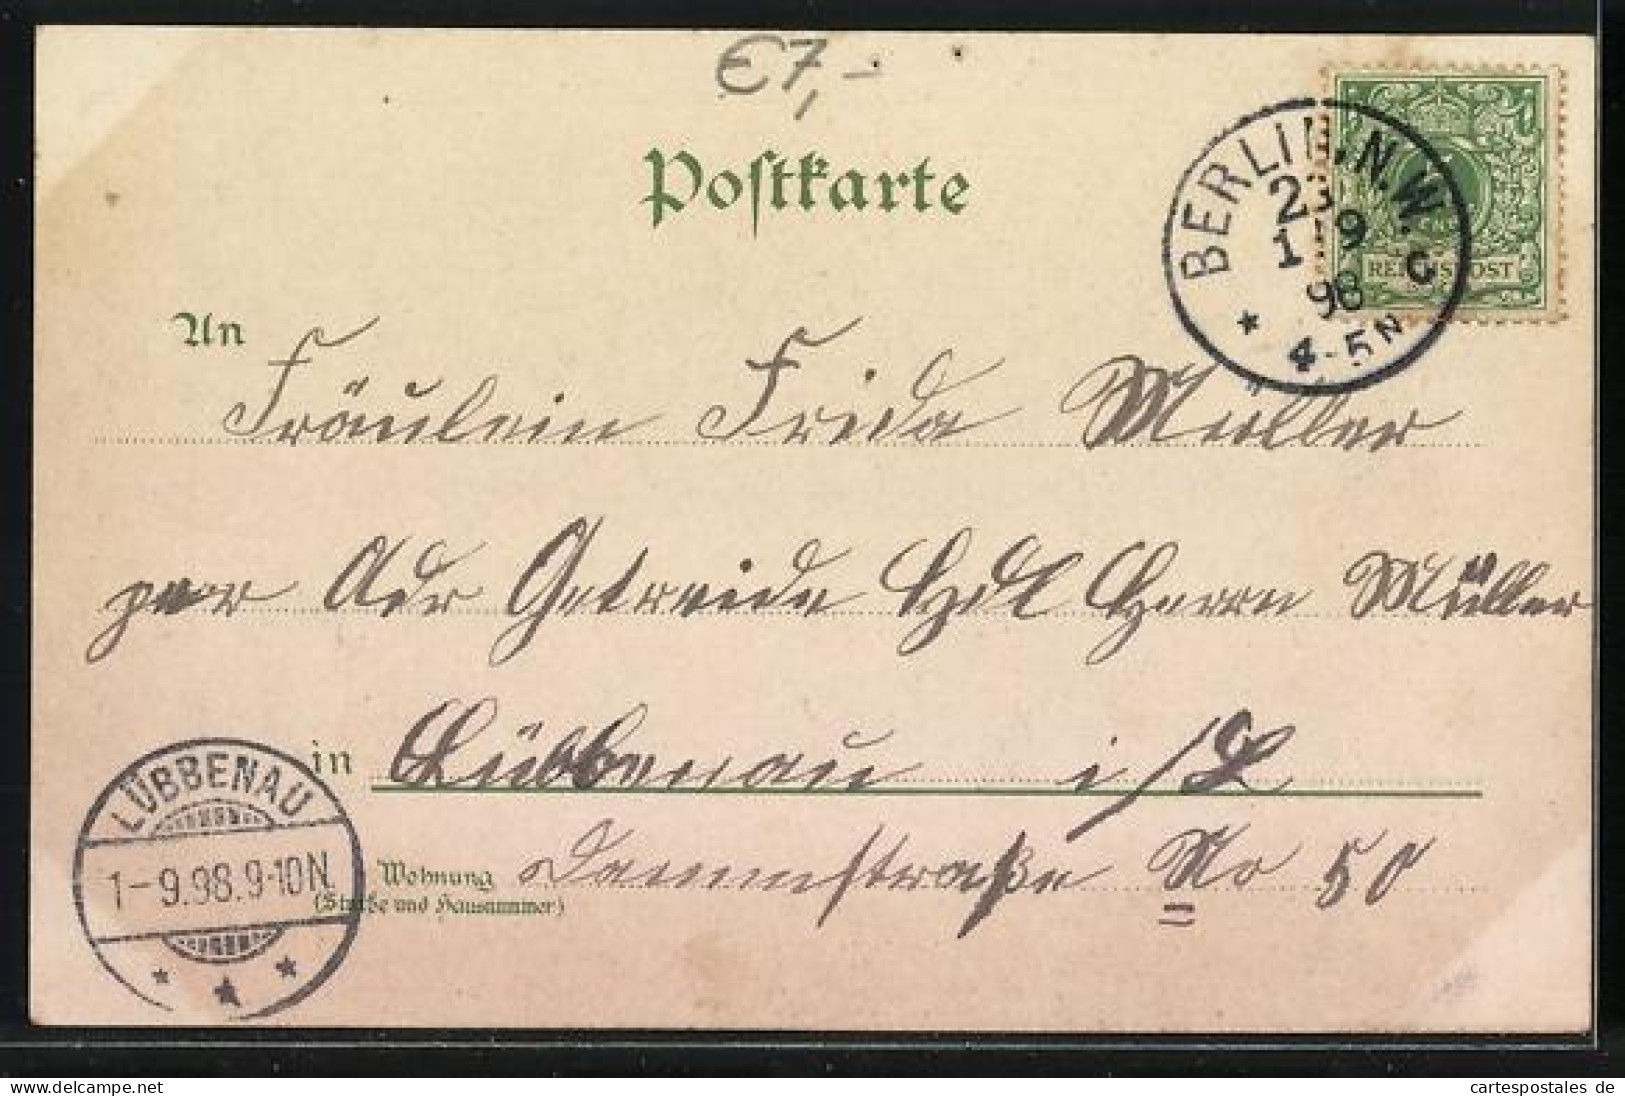 €7,-
Postkarte
BERLIN, N.W.
23
1 9
98
4-5N
C
REICHSPOST
An
Fräulein Frida Müller
per Adr Getreide Hdl Herrn Müller
in Lübbenau i/L
Wohnung Dammstraße No 50
(Straße und Hausnummer)
LÜBBENAU
1-9.98.9-10N
www.oldthing.net
cartespostales de